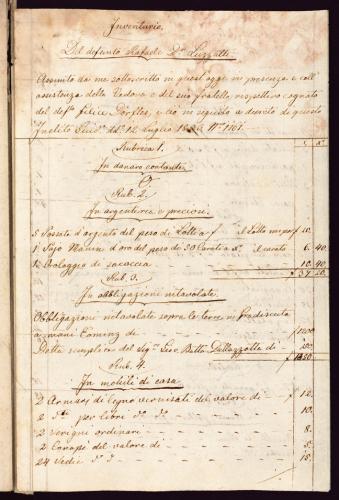 Inventario
Del defunto Rafaele Qm Luzzatti
Assunto da me sottoscritto in quest'oggi in presenza e coll'
assistenza della Vedova e del suo fratello, rispettivo cognato
del deft. Felice Dörfles, e ciò in seguito a decreto di questo
Inclito Giud. dd. 12 luglio N. 1161.
Rubrica 1.
In danaro contante
O
Rub. 2.
In argenteria e preziosi
5 Possate d'argento del peso di Lotti a f il Lotto 10.
1 d'oro del peso di 30 Carati a il carato 6. 40
1 Orologgio de saccocia 10. 40
f 37. 20.
Rub. 3.
In obbligazioni intavolate
Obbligazione intavolata sopra le terre in
a mani di f 1200
Detta semplice del Sigr. Gio. Batta Dallazzotta di 150.
f 1350.
Rub. 4.
In mobili di casa
2 Armarj di legno vernisati del valore di f 12.
2 per libri 10.
2 ordinari 8.
2 Canapè del valore di 5.
24 Sedie 15.